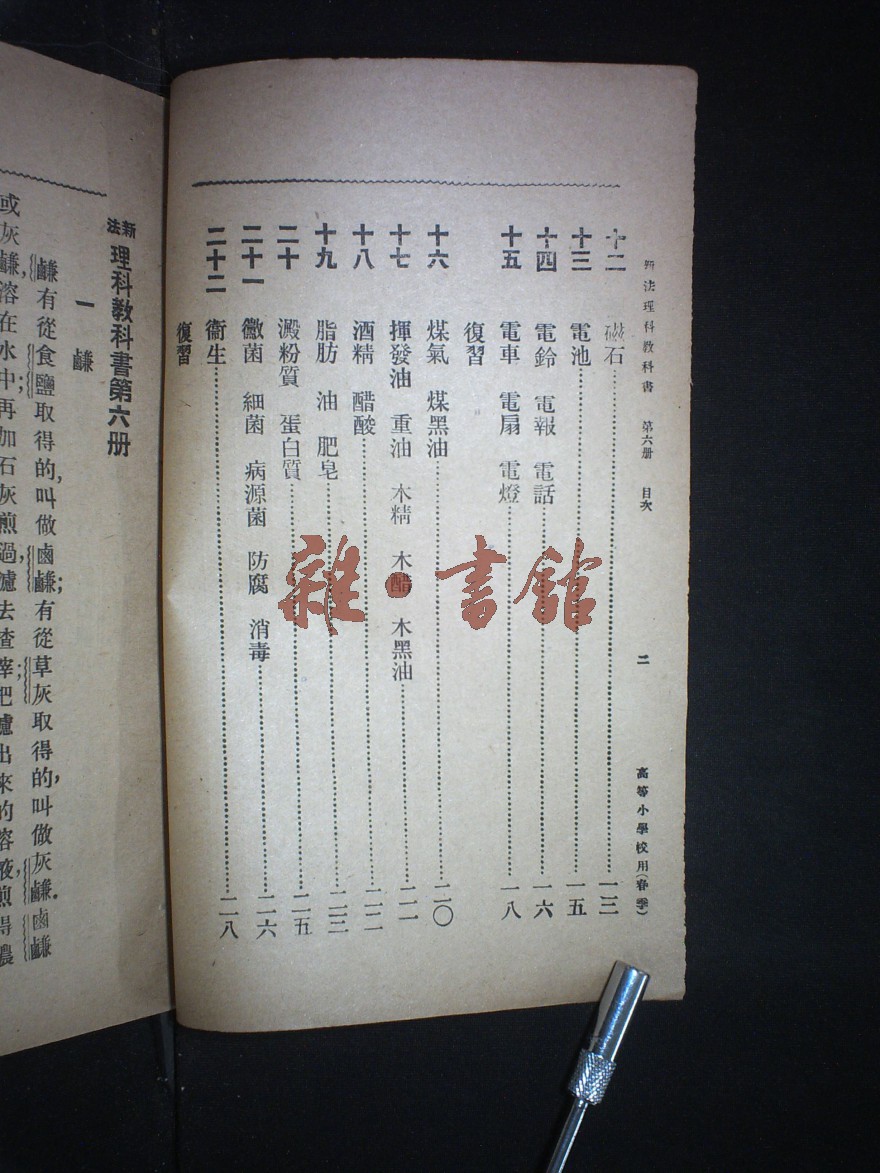 新法理科教科書 第六册 目次 二 高等小學校用(春季)
十二 磁石 一三
十三 電池 一五
十四 電鈴 電報 電話 一六
十五 電車 電扇 電燈 一八
復習
十六 煤氣 煤黑油 二〇
十七 揮發油 重油 木精 木醋 木黑油 二一
十八 酒精 醋酸 二二
十九 脂肪 油 肥皂 二三
二十 澱粉質 蛋白質 二五
二十一 黴菌 細菌 病源菌 防腐 消毒 二六
二十二 衞生 二八
復習
新法 理科教科書第六册
一 鹼
鹼有從食鹽取得的,叫做鹵鹼;有從草灰取得的,叫做灰鹼.鹵鹼
或灰鹼,溶在水中;再加石灰煎過,濾去渣滓;把濾出來的溶液,煎得濃
雜·書館